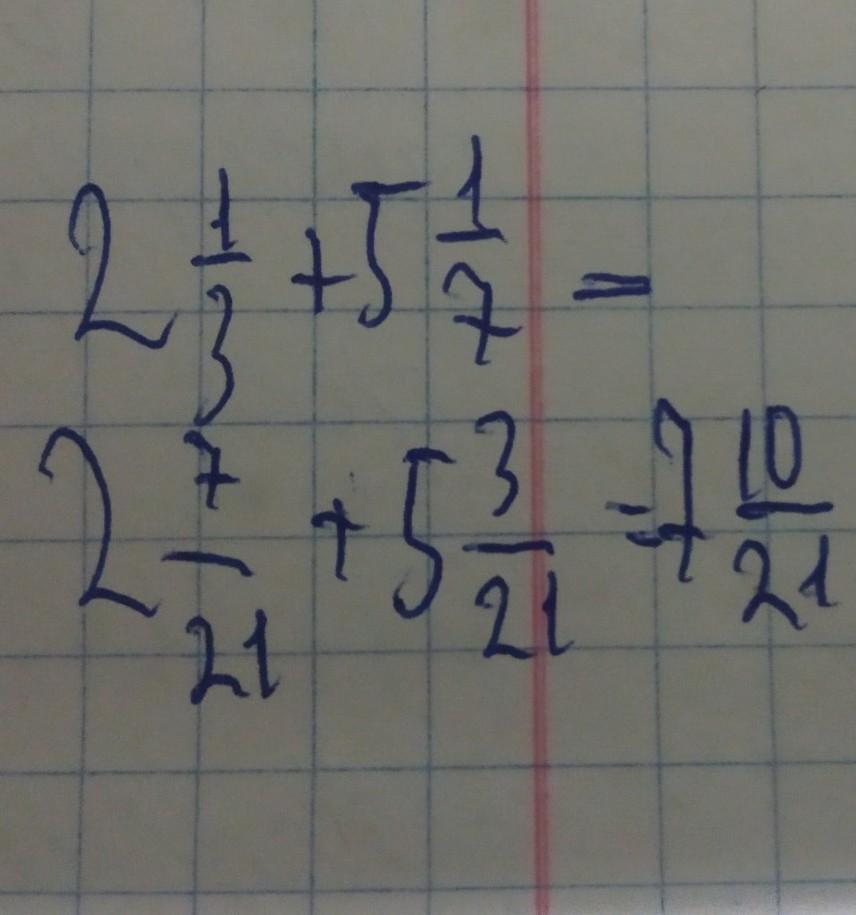 2 1/3 + 5 1/7 =
2 7/21 + 5 3/21 = 7 10/21